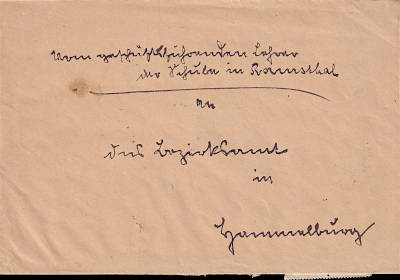 Vom geschäftsführenden Lehrer
der Schule in Ramsthal
an
das Bezirksamt
in
Hammelburg